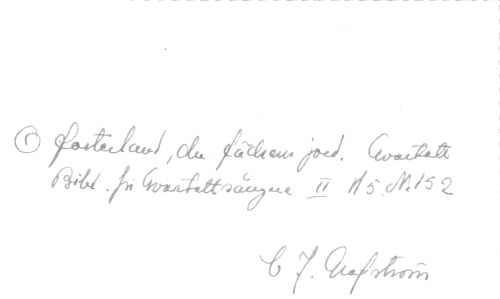 ① Fosterland, du fädrens jord. Qvartett
Bibl. för Qvartettsångare II H5. N. 152
C J. Uafström